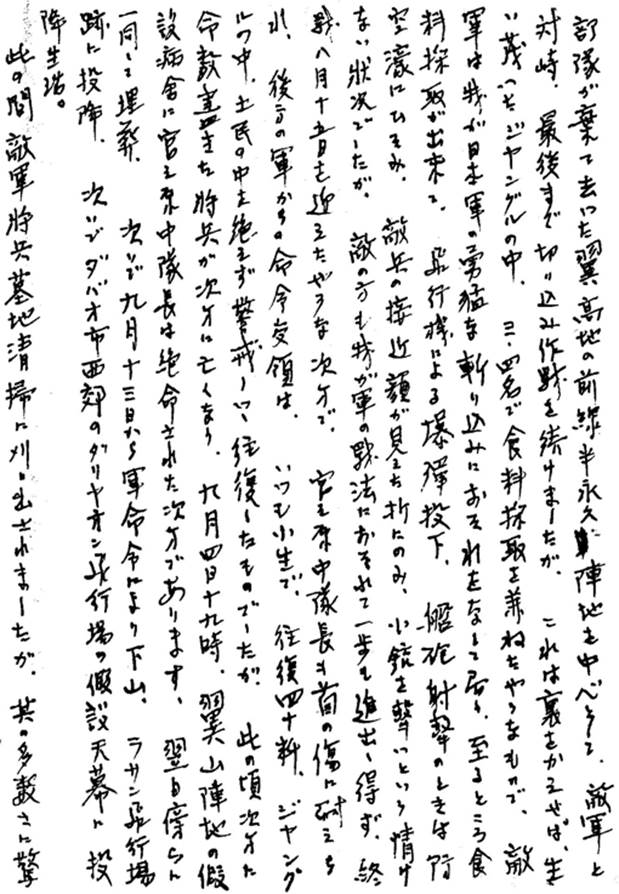 部隊が棄て去つた翼高地の前線半永久陣地を中心として、敵軍と
対峙、最後まで切り込み作戦を続けましたが、これは裏をかえせば、生
い茂つたジャングルの中、三・四名で食料採取を兼ねたやうなもので、敵
軍は我が日本軍の勇猛な斬り込みにおそれをなして居り、至るところ食
料採取が出来て、飛行機による爆弾投下、艦砲射撃のときは防
空濠にひそみ、敵兵の接近顔が見えた折にのみ、小銃を撃つという情け
ない状況でしたが、敵の方も我が軍の戦法におそれて一歩も進出し得ず、終
戦八月十五日を迎えたやうな次才で、宮之原中隊長も首の傷に耐えら
れ、後方の軍からの命令受領は、いつも小生で、往復四十粁、ジャング
ルの中、土民の中を絶えず警戒しつつ往復したものでしたが、此の頃次々と
命数尽きた将兵が次々に亡くなり、九月四日十九時、翼山陣地の仮
設病舎に宮之原中隊長は絶命された次才であります。翌日傍らに
一同して埋葬、次いで九月十三日から軍命令により下山、ラサン飛行場
跡に投降、次いでダバオ市西郊のダリヤオン飛行場の仮設天幕に投
降生活。
此の間敵軍将兵墓地清掃に刈り出されましたが、其の多数さに驚